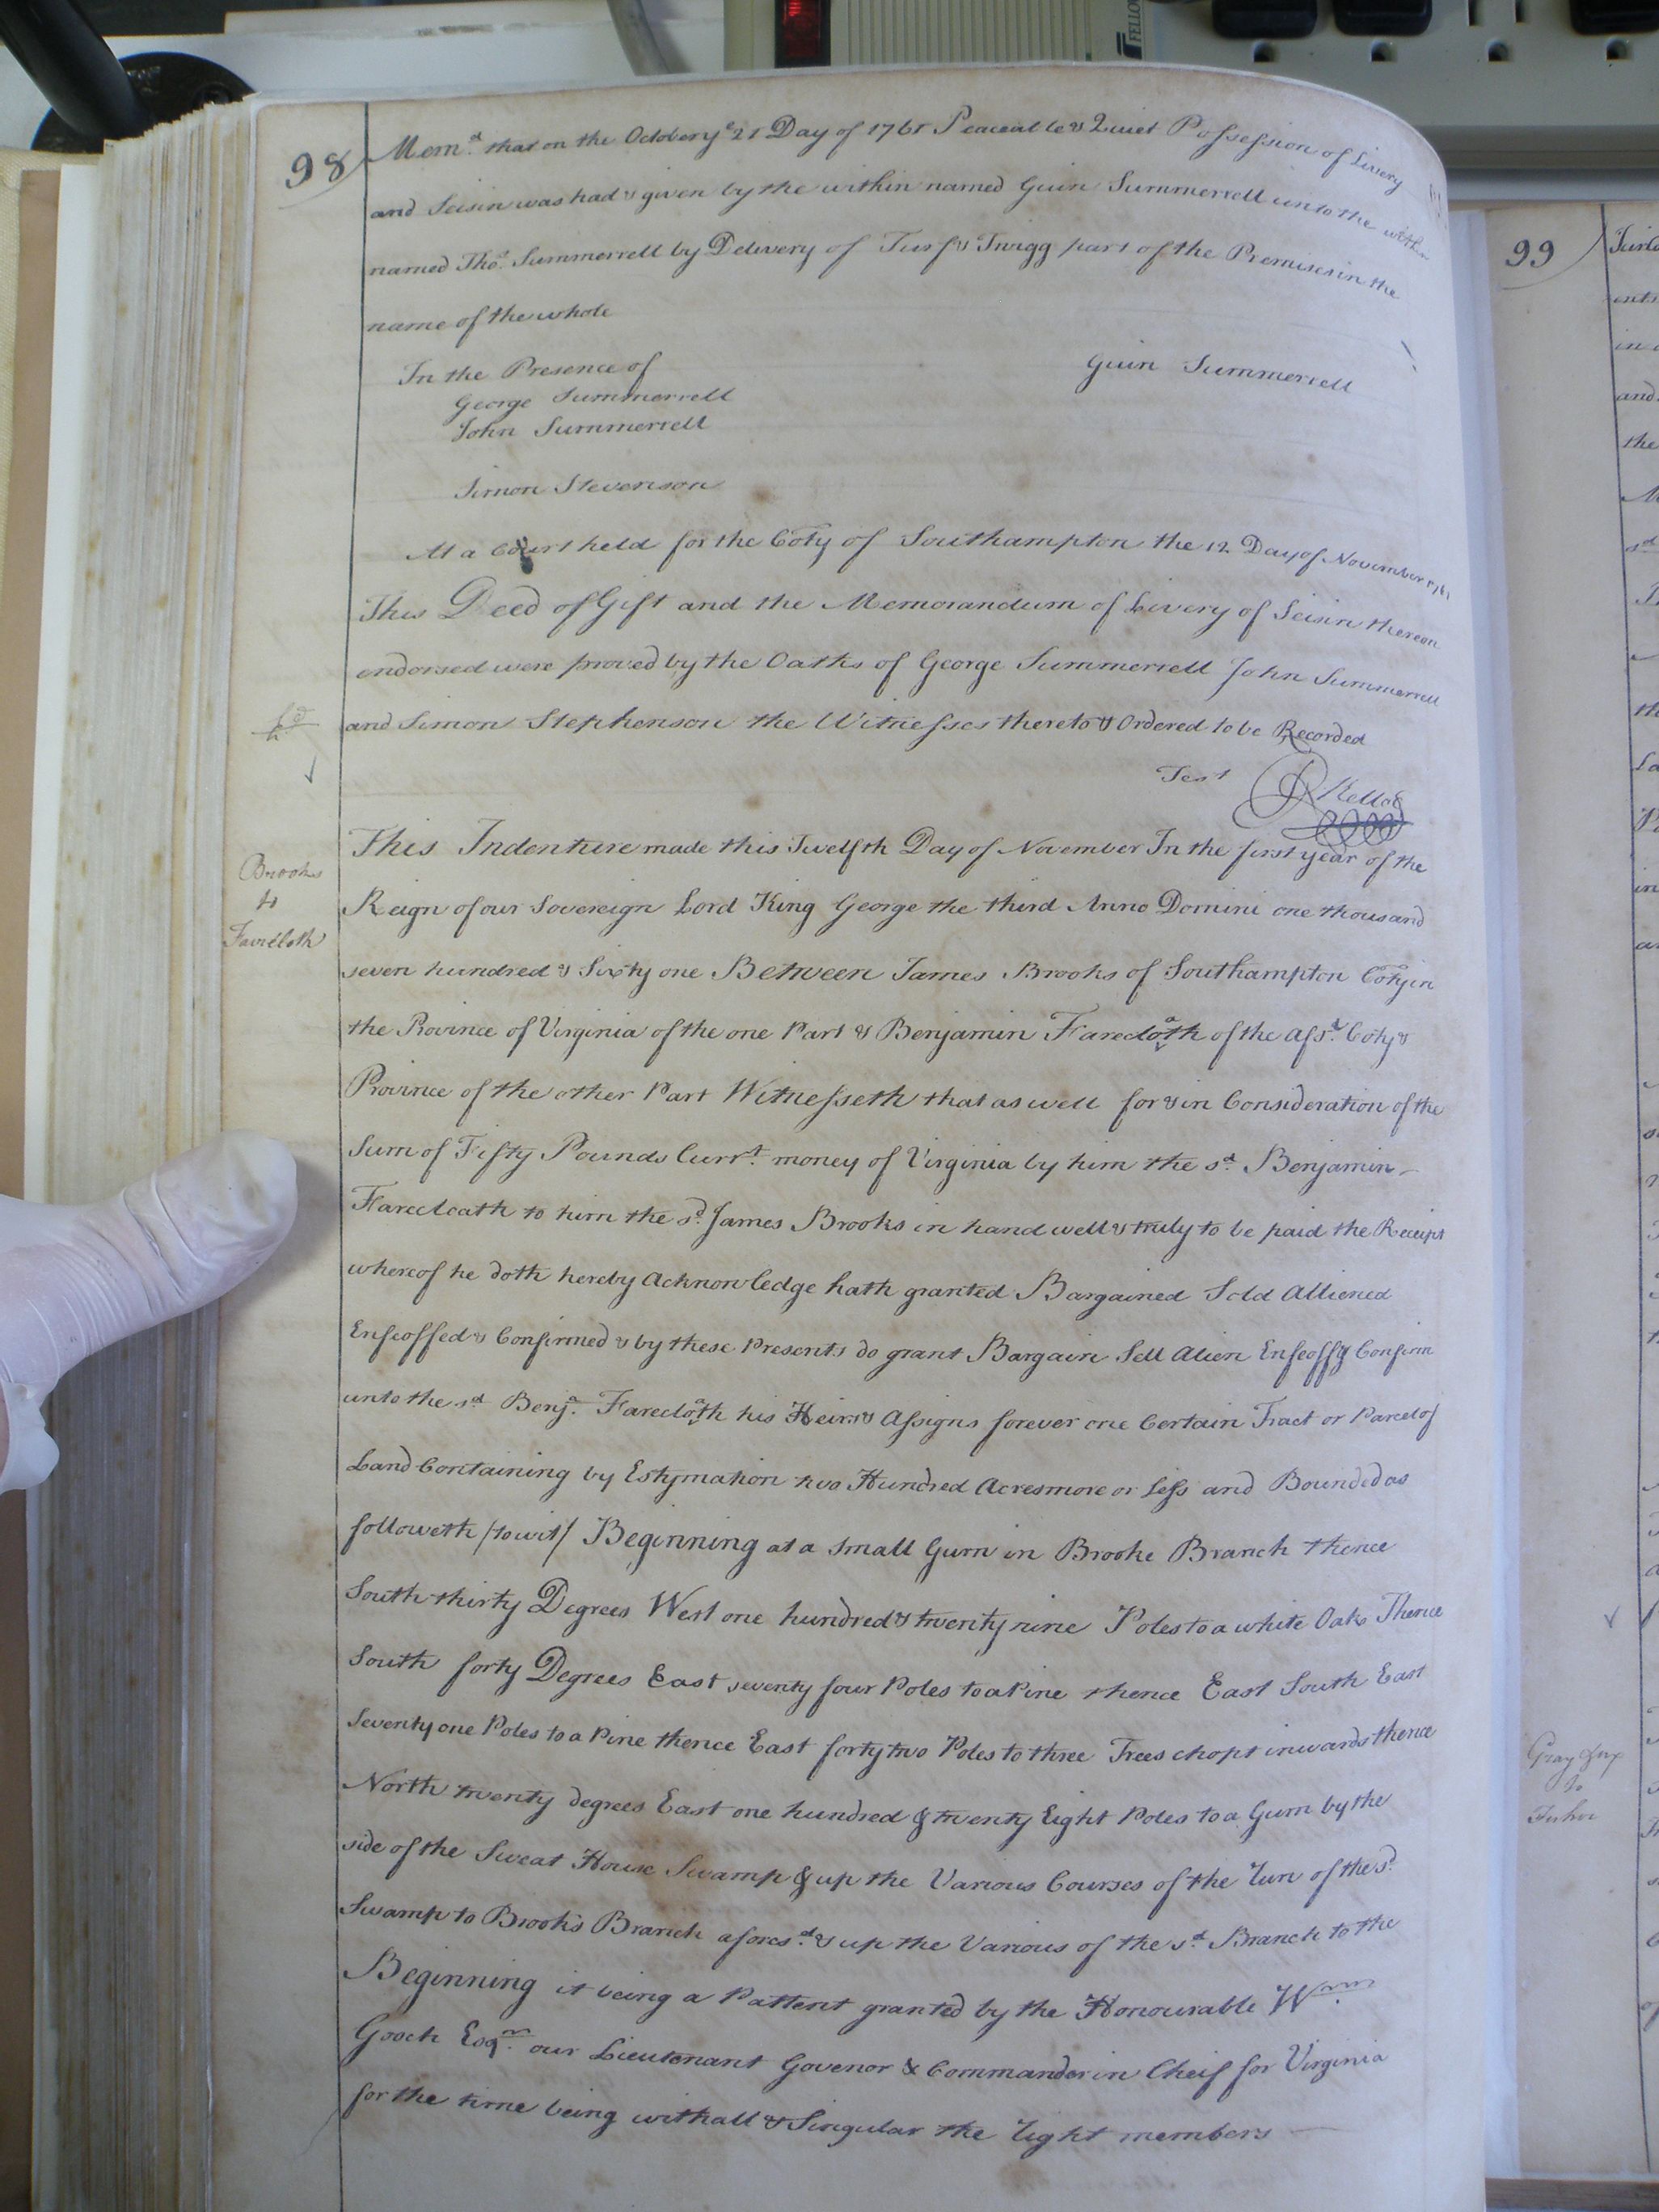 FELLO
98
Memd. that on the October ye 21 Day of 1761 Peaceable & Quiet Possession of Livery
and Seisin was had & given by the within named Guin Summerrell unto the within
named Thos. Summerrell by Delivery of Turf & Twigg part of the Premises in the
name of the whole
In the Presence of
Guin Summerrell
George Summerrell
John Summerrell
Simon Stevenson
At a Court held for the Coty of Southampton the 12 Day of November 1761
This Deed of Gift and the Memorandum of Livery of Seisin thereon
endorsed were proved by the Oaths of George Summerrell John Summerrell
and Simon Stephenson the Witnesses thereto & Ordered to be Recorded
Test R Kello
Brooks
to
Faircloth
This Indenture made this Twelfth Day of November In the first year of the
Reign of our Sovereign Lord King George the third Anno Domini one thousand
seven hundred & Sixty one Between James Brooks of Southampton Coty in
the Province of Virginia of the one Part & Benjamin Farecloath of the afsd. Coty &
Province of the other Part Witnesseth that as well for & in Consideration of the
Sum of Fifty Pounds Currt. money of Virginia by him the sd. Benjamin
Farecleath to him the sd. James Brooks in hand well & truly to be paid the Receipt
whereof he doth hereby Acknowledge hath granted Bargained Sold Alliened
Enfeoffed & Confirmed & by these Presents do grant Bargain Sell Alien Enfeoff & Confirm
unto the sd Benja. Farecloath his Heirs & Assigns forever one Certain Tract or Parcel of
Land Containing by Estymation two Hundred Acres more or Less and Bounded as
followeth /to wit/ Beginning at a small Gum in Brooke Branch thence
South thirty Degrees West one hundred & twenty nine Poles to a white Oak Thence
South forty Degrees East seventy four Poles to a Pine thence East South East
Seventy one Poles to a Pine thence East forty two Poles to three Trees chopt inwards thence
North twenty degrees East one hundred & twenty Eight Poles to a Gum by the
side of the Sweat House Swamp & up the Various Courses of the Run of the sd.
Swamp to Brook's Branch aforesd. & up the Various of the sd. Branch to the
Beginning it being a Pattent granted by the Honourable Wm.
Gooch Esqr. our Lieutenant Govenor & Commander in Cheif for Virginia
for the time being with all & Singular the Right members
99
and
the
Gray
to